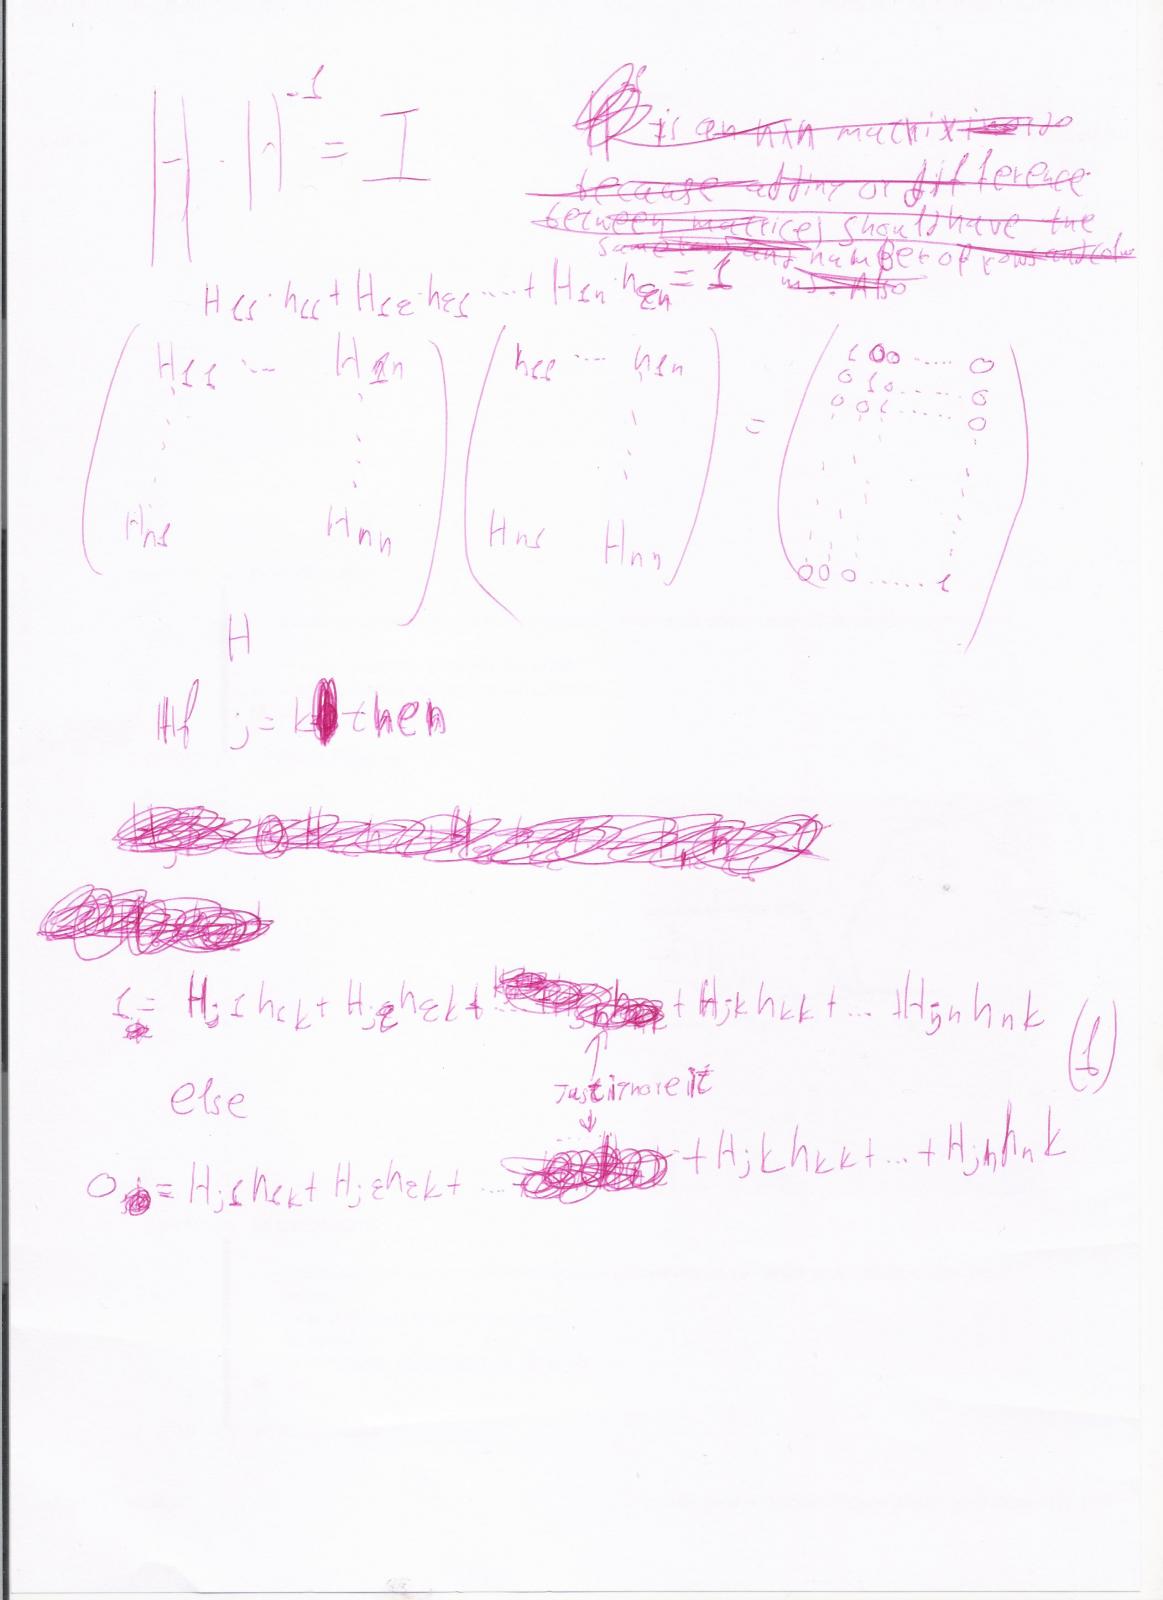 H · H⁻¹ = I
is an nxn matrix
because adding or difference
between matrices should have the
same number of rows and
Also
H₁₁·h₁₁ + H₁₂·h₂₁ ..... + H₁n·h₂n = 1
H₁₁ ... H₁n h₁₁ ... h₁n 1 0 0 ..... 0
0 1 0 ..... 0
= 0 0 1 ..... 0
Hn₁ Hnn Hn₁ Hnn
0 0 0 ...... 1
H
If j = k then
1 = Hj₁h₁k + Hj₂h₂k + ... + Hjkhkk + ... + Hjnhnk (1)
else Just ignore it
0 = Hj₁h₁k + Hj₂h₂k + ... + Hjkhkk + ... + Hjnhnk